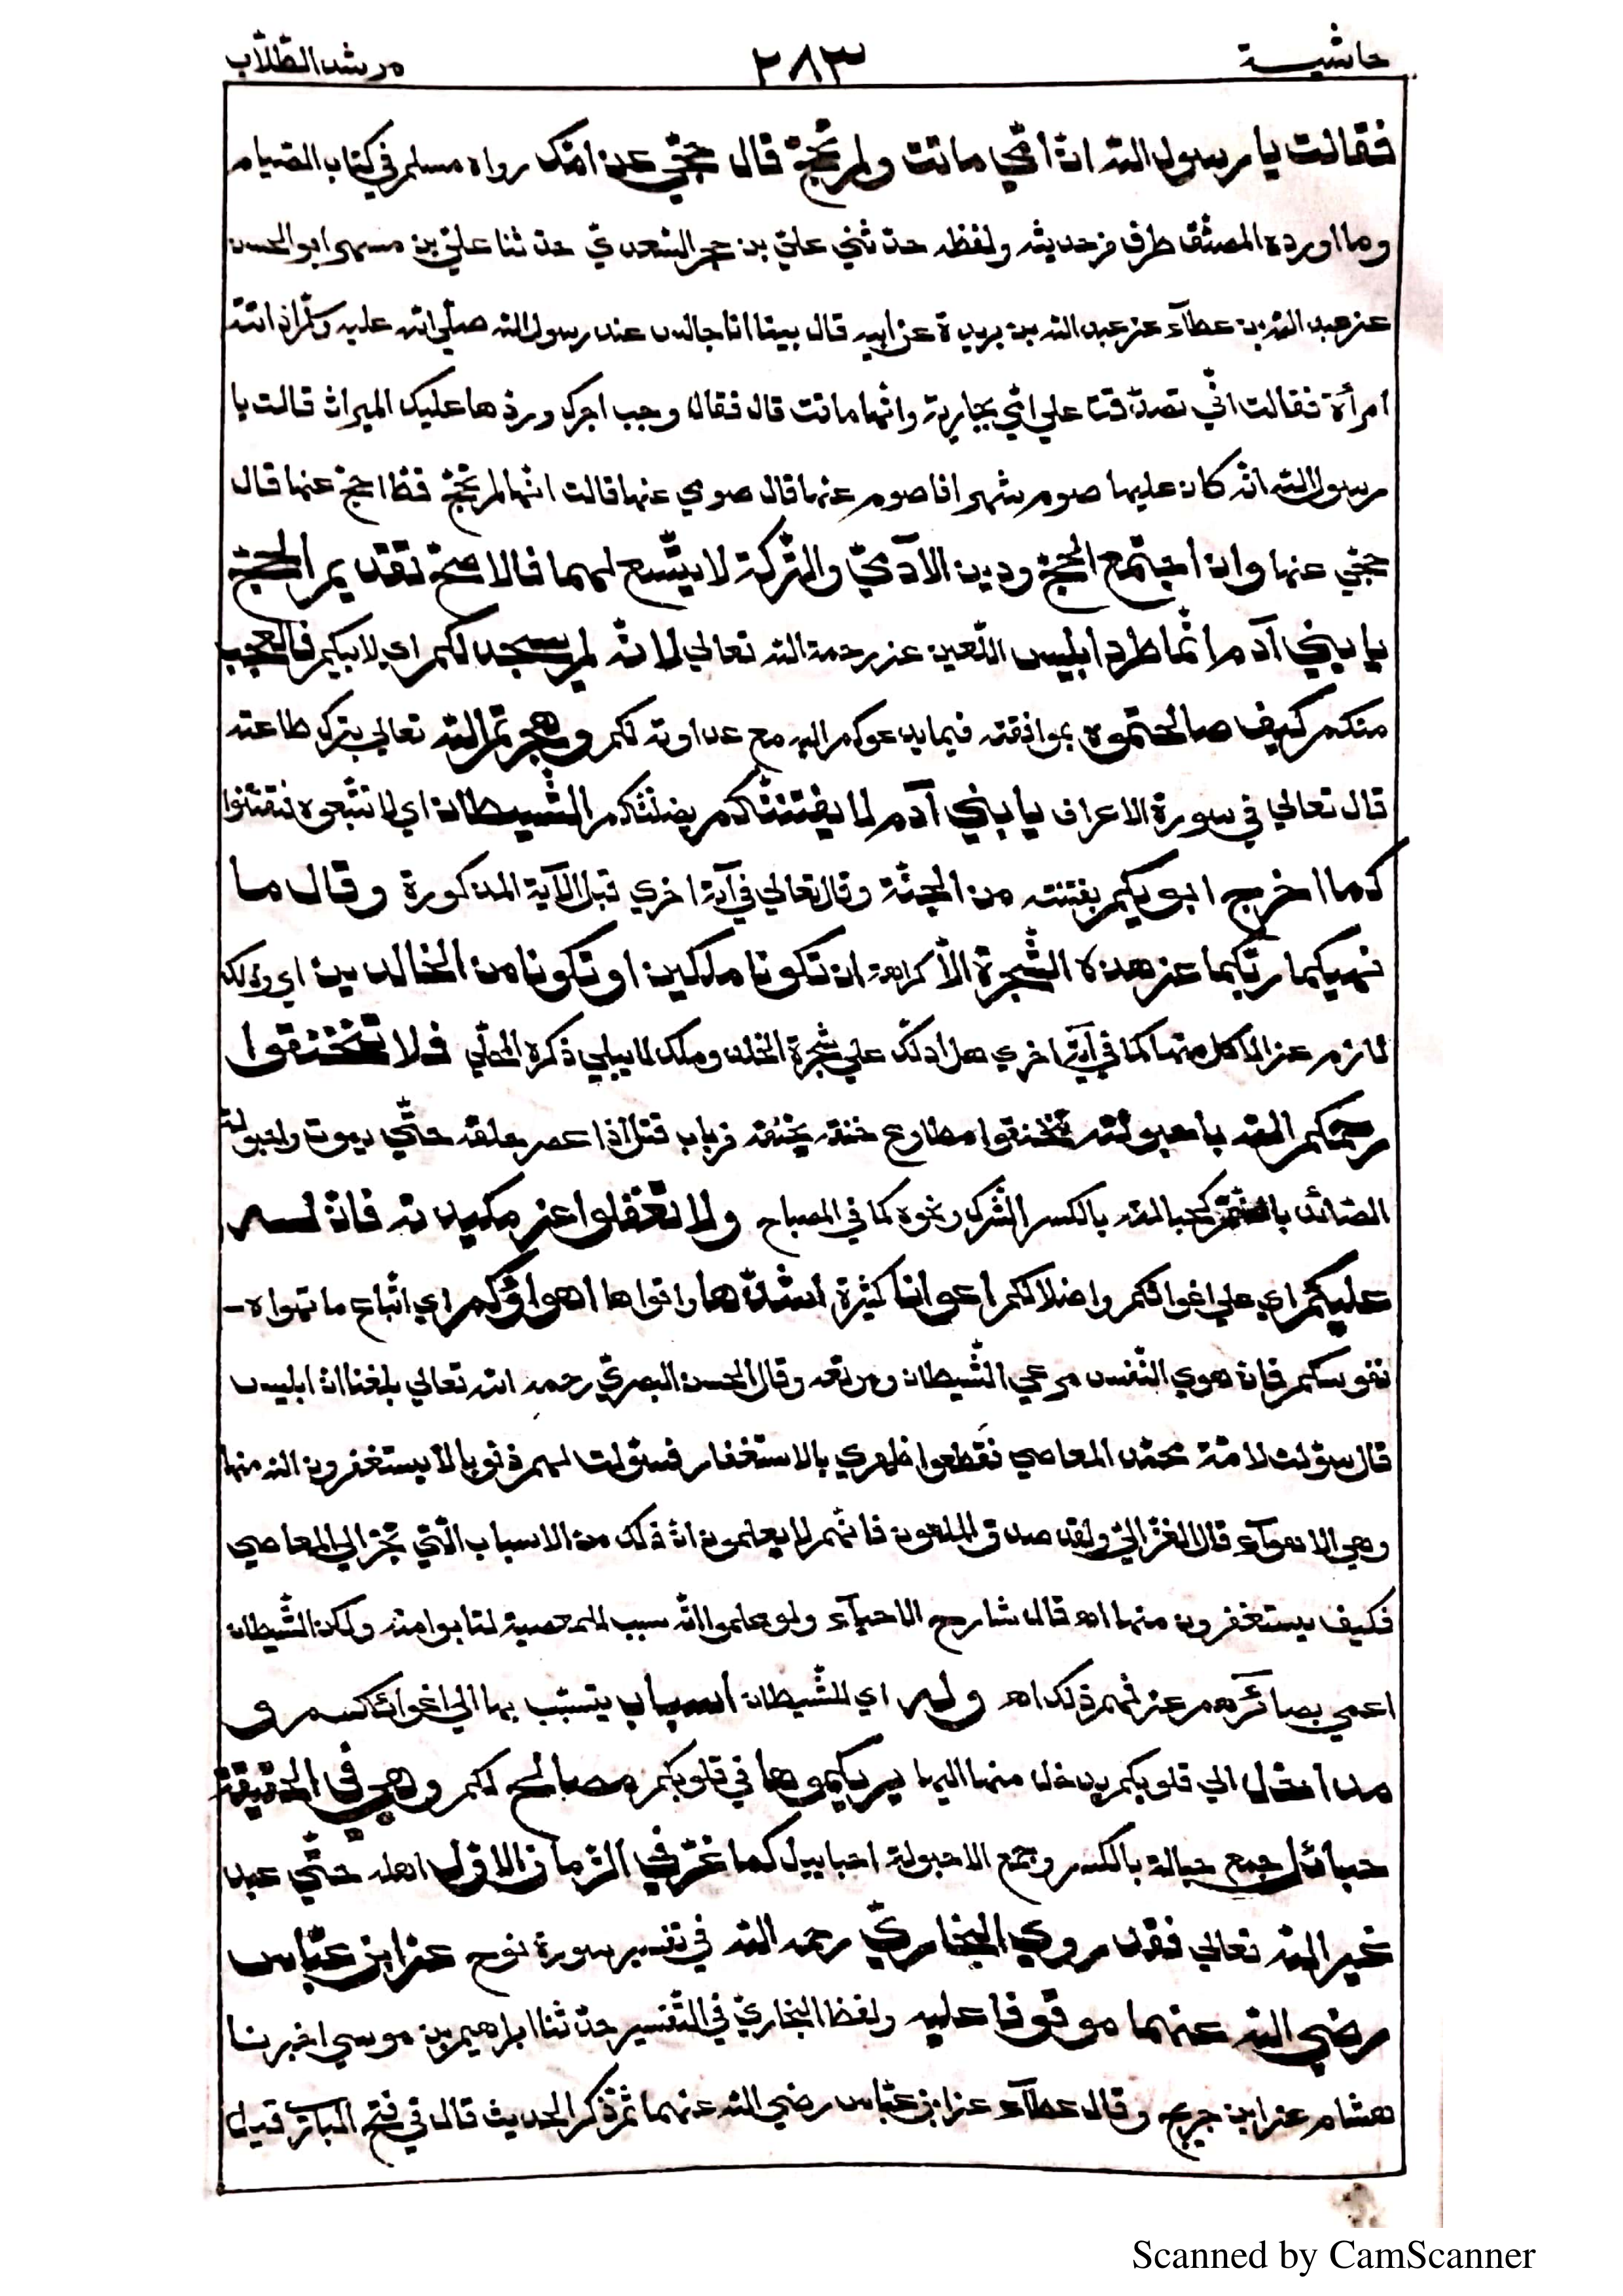 حاشيـــة ٢٨٣ مرشد الطّلّاب
فقالت يا رسول الله انّ امّي ماتت ولم تحجّ قال حجّي عن امّك رواه مسلم في كتاب الصّيام
وما اورده المصنّف طرف من حديثه ولفظه حدّثني عليّ بن حجر السّعديّ حدّثنا عليّ بن مسهر ابو الحسن
عن عبد الله بن عطآء عن عبد الله بن بريدة عن ابيه قال بينا انا جالس عند رسول الله صلّي الله عليه وسلّم اذ اتته
امرأة فقالت انّي تصدّقت علي امّي بجارية وانّها ماتت قال فقال وجب اجرك وردّها عليك الميراث قالت يا
رسول الله انّه كان عليها صوم شهر افاصوم عنها قال صومي عنها قالت انّها لم تحجّ قطّ احجّ عنها قال
حجّي عنها وان اجتمع الحجّ ودين الآدميّ والتّركة لا يتّسع لهما فالاصحّ تقديم الحجّ
يا بني آدم انّما طرد ابليس اللّعين عن رحمة الله تعالي لانّه لم يسجد لكم اي لابيكم فالعجب
منكم كيف صالحتموه بموافقته فيما يدعوكم اليه مع عداوته لكم وهجرتم الله تعالي بترك طاعته
قال تعالي في سورة الاعراف يا بني آدم لا يفتننّكم يضلّنّكم الشّيطان اي لا تتّبعوه فتفتنوا
كما اخرج ابويكم بفتنته من الجنّة وقال تعالي في آية اخري قبل الآية المذكورة وقال ما
نهيكما ربّكما عن هذه الشّجرة الّا كراهة ان تكونا ملكين او تكونا من الخالدين اي وذلك
لازم عن الاكل منها كما في آية اخري هل ادلّك علي شجرة الخلد وملك لا يبلي ذكره المحلّي فلا تختنقوا
رحمكم الله باحبولته تختنقوا مطاوع خنقه يخنقه من باب قتل اذا عصر حلقه حتّي يموت واحبولة
الصّائد بالضّمّ كحبالته بالكسر الشّرك ونحوه كما في المصباح ولا تغفلوا عن مكيدته فانّ لــه
عليكم اي علي اغوائكم واضلالكم اعوانا كثيرة اشدّها واقواها اهواؤكم اي اتّباع ما تهواه
نفوسكم فانّ هوي النّفس مرعي الشّيطان ومرتعه وقال الحسن البصريّ رحمه الله تعالي بلغنا انّ ابليس
قال سوّلت لامّة محمّد المعاصي فقطعوا ظهري بالاستغفار فسوّلت لهم ذنوبا لا يستغفرون الله منها
وهي الاهوآء قال الغزاليّ ولقد صدق الملعون فانّهم لا يعلمون انّ ذلك من الاسباب الّتي تجرّ الي المعاصي
فكيف يستغفرون منها اه قال شارح الاحيآء ولو علموا انّه سبب للمعصية لتابوا منه ولكن الشّيطان
اعمي بصائرهم عن فهم ذلك اه وله اي للشّيطان اسباب يتسبّب بها الي اغوائكـم و
مداخل الي قلوبكم يدخل منها اليها يريكموها في قلوبكم مصالح لكم وهي في الحقيقة
حبائل جمع حبالة بالكسر وجمع الاحبولة احابيل كما غرّ في الزّمان الاوّل اهله حتّي عبد
غير الله تعالي فقد روي البخاريّ رحمه الله في تفسير سورة نوح عن ابن عبّاس
رضي الله عنهما موقوفا عليه ولفظ البخاريّ في التّفسير حدّثنا ابراهيم بن موسي اخبرنا
هشام عن ابن جريج وقال عطآء عن ابن عبّاس رضي الله عنهما ثمّ ذكر الحديث قال في فتح الباري قيل
Scanned by CamScanner